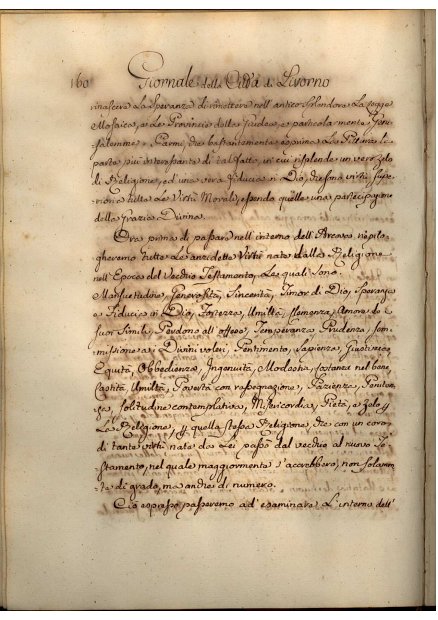 160 Giornale della Città di Livorno
rinascere La Speranza di rimettere nell' antico splendore La Legge
Mosaica, e Le Provincie della Giudea, e particolarmente Geru-
salemme. Parmi, che bastantemente esprima La Pittura la
parte più interessante di tal fatto, in cui risplende un vero zelo
di Religione, ed una vera fiducia in Dio, che sono virtù supe-
riori a tutte Le Virtù Morali, essendo quelle una partecipazione
della Grazia Divina.
Ora prima di passare nell' interno dell' Arcava riepilo-
gheremo tutte Le anzidette Virtù nate dalla Religione
nell' Epoca del Vecchio Testamento, Le quali sono.
Mansuetudine, Generosità, Sincerità, Timor di Dio, Speranza
e Fiducia in Dio, Fortezza, Umiltà, Clemenza, Amore de i
suoi Simili, Perdono all' offese, Temperanza, Prudenza, Som-
missione a i Divini voleri, Pentimento, Sapienza, Giustizia,
Equità, Obbedienza, Ingenuità, Modestia, Costanza nel bene,
Castità, Umiltà, Povertà con rassegnazione, Pazienza, Peniten-
za, Solitudine contemplativa, Misericordia, Pietà, e zelo p
La Religione, p quella stessa Religione, che con un coro
di tante virtù nate da Lei passò dal vecchio al nuovo Te-
stamento, nel quale maggiormente s' accrebbero, non solamen-
te di grado, ma anche di numero.
Ciò espresso passeremo ad' esaminare L' interno dell'